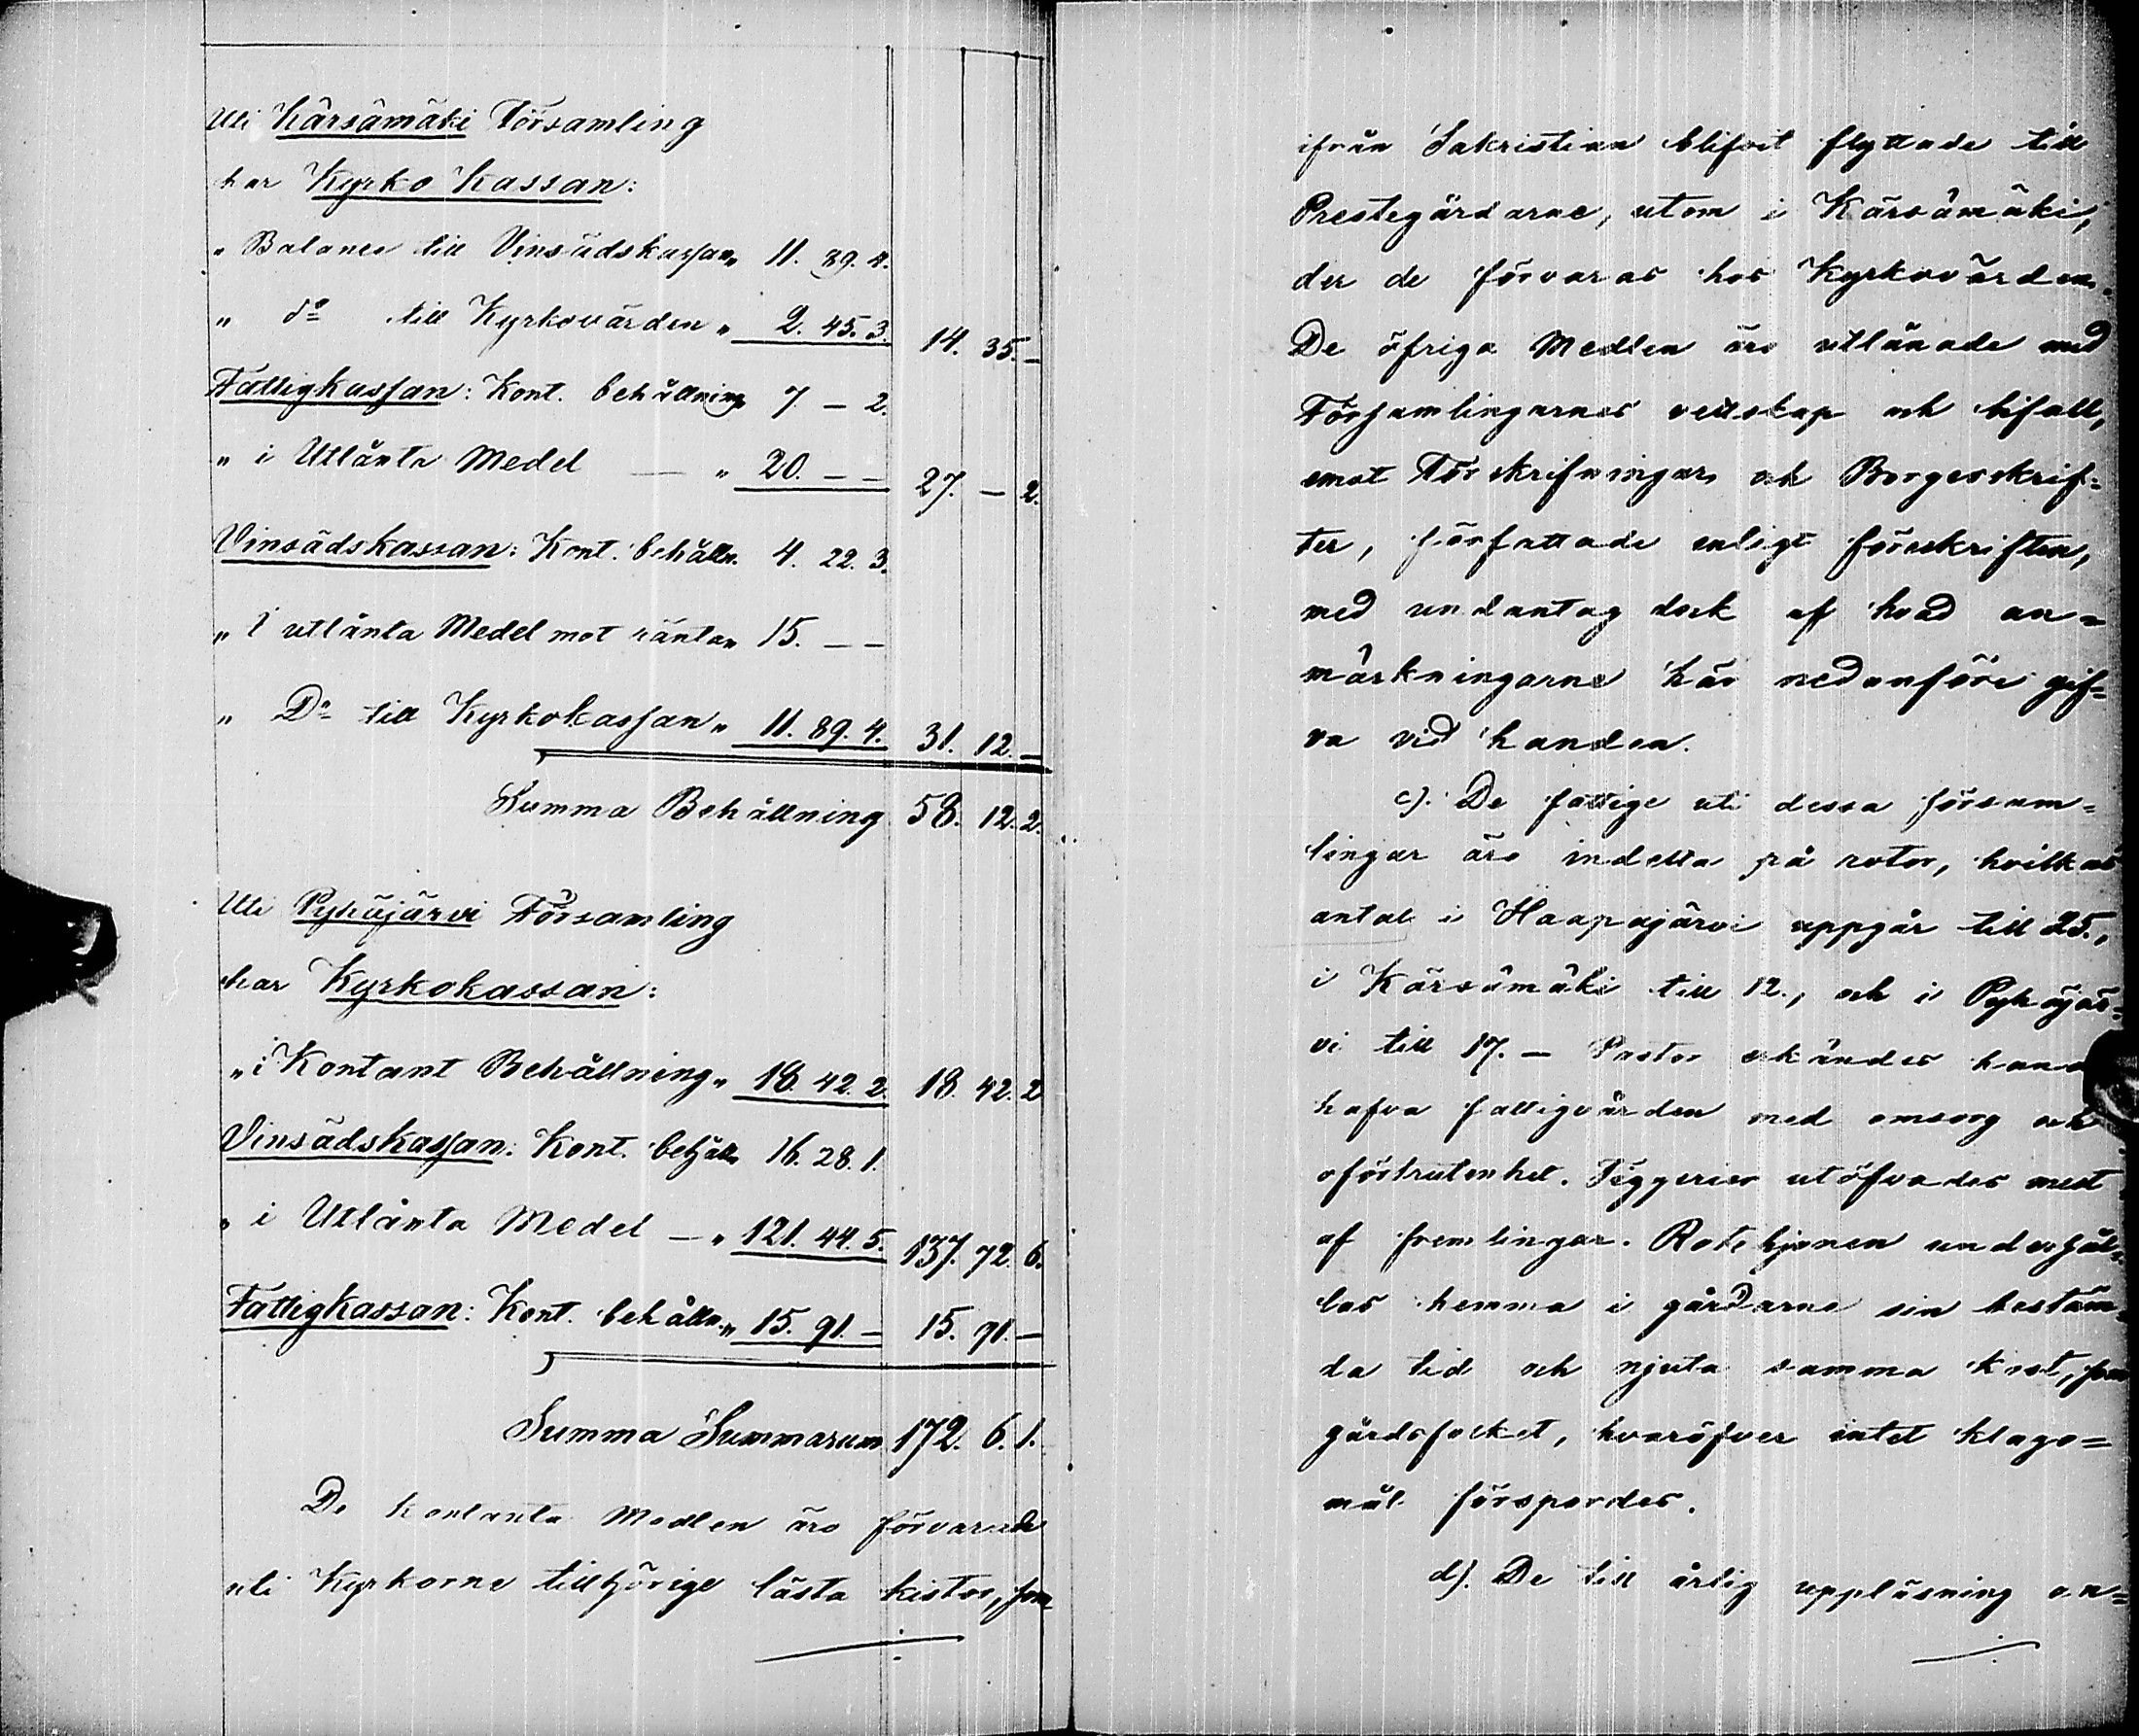 Uti Kärsämäki Församling
har Kyrko Kassan:
" Balance till Vinsädskassan " 11. 89. 4.
" do till Kyrkovärden " 2. 45. 3. 14. 35. –
Fattigkassan: Kont. behållning 7. – 2.
" i Utlånta Medel — " 20. – – 27. – 2.
Vinsädskassan: Kont. behålln. 4. 22. 3.
" i utlånta Medel mot räntan 15. – –
" Do till Kyrkokassan " 11. 89. 4. 31. 12. –
Summa Behållning 58. 12. 2.
Uti Pyhäjärvi Församling
har Kyrkokassan:
" i Kontant Behållning " 18. 42. 2. 18. 42. 2
Vinsädskassan: Kont. behålln 16. 28. 1.
" i Utlånta Medel — " 121. 44. 5. 137. 72. 6.
Fattigkassan: Kont. behålln. " 15. 91. – 15. 91. –
Summa Summarum 172. 6. 1.
De kontanta Medlen äro förvarade
uti Kyrkorne tillhörige låsta kistor, som
ifrån Sakristian blifvit flyttade till
Prestegårdarne, utom i Kärsämäki,
der de förvaras hos Kyrkovärden.
De öfriga Medlen äro utlånade med
Församlingarnes vettskap och bifall,
emot Förskrifningar och Borgesskrif=
ter, författade enligt föreskriften,
med undantag dock af hvad an=
märkningarne här nedanföre gif=
va vid handen.
c). De fattige uti dessa försam=
lingar äro indelta på rotor, hvilkas
antal i Haapajärvi uppgår till 25.,
i Kärsämäki till 12., och i Pyhäjär=
vi till 17. – Pastor erkändes hand
hafva fattigvården med omsorg och
oförtrutenhet. Tiggerier utöfvades mest
af fremlingar. Rotehjonen underhål=
las hemma i gårdarne sin bestäm=
da tid och njuta samma kost, som
gårdsfolket, hvaröfver intet klago=
mål förspordes.
d). De till årlig uppläsning an=